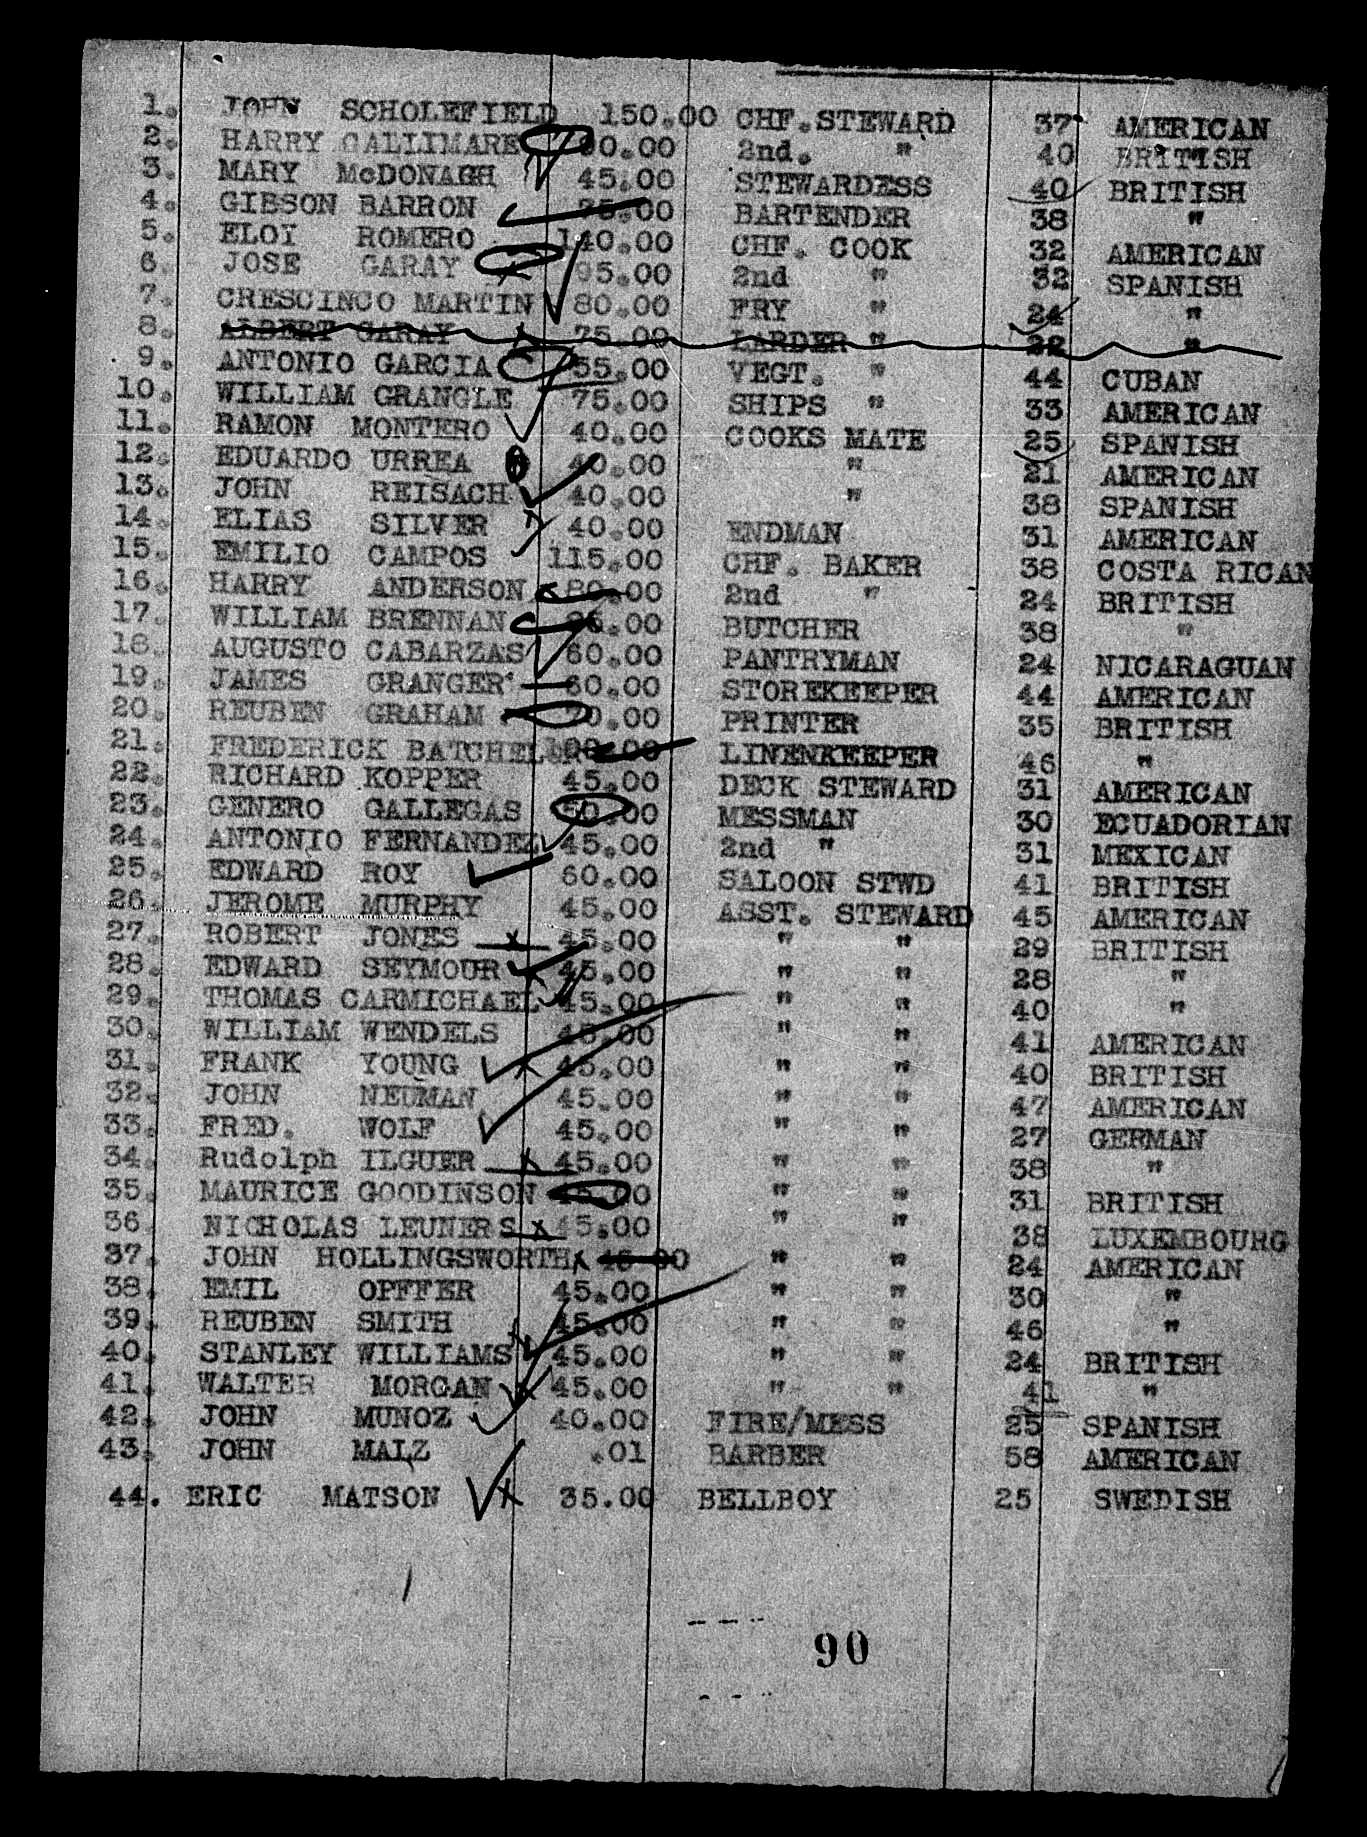 1. JOHN SCHOLEFIELD 150.00 CHF.STEWARD 37 AMERICAN
2. HARRY GALLIMARE 90.00 2nd. " 40 BRITISH
3. MARY McDONAGH 45.00 STEWARDESS 40 BRITISH
4. GIBSON BARRON 75.00 BARTENDER 38 "
5. ELOI ROMERO 140.00 CHF. COOK 32 AMERICAN
6. JOSE GARAY 95.00 2nd " 32 SPANISH
7. CRESCINCO MARTIN 80.00 FRY " 24 "
8. ALBERT GARAY 75.00 LARDER " 22 "
9. ANTONIO GARCIA 55.00 VEGT. " 44 CUBAN
10. WILLIAM GRANGLE 75.00 SHIPS " 33 AMERICAN
11. RAMON MONTERO 40.00 COOKS MATE 25 SPANISH
12. EDUARDO URREA 40.00 " 21 AMERICAN
13. JOHN REISACH 40.00 " 38 SPANISH
14. ELIAS SILVER 40.00 ENDMAN 31 AMERICAN
15. EMILIO CAMPOS 115.00 CHF. BAKER 38 COSTA RICAN
16. HARRY ANDERSON 80.00 2nd " 24 BRITISH
17. WILLIAM BRENNAN .00 BUTCHER 38 "
18. AUGUSTO CABARZAS 60.00 PANTRYMAN 24 NICARAGUAN
19. JAMES GRANGER 60.00 STOREKEEPER 44 AMERICAN
20. REUBEN GRAHAM 70.00 PRINTER 35 BRITISH
21. FREDERICK BATCHELOR .00 LINENKEEPER 46 "
22. RICHARD KOPPER 45.00 DECK STEWARD 31 AMERICAN
23. GENERO GALLEGAS 50.00 MESSMAN 30 ECUADORIAN
24. ANTONIO FERNANDEZ 45.00 2nd " 31 MEXICAN
25. EDWARD ROY 60.00 SALOON STWD 41 BRITISH
26. JEROME MURPHY 45.00 ASST. STEWARD 45 AMERICAN
27. ROBERT JONES 45.00 " " 29 BRITISH
28. EDWARD SEYMOUR 45.00 " " 28 "
29. THOMAS CARMICHAEL 45.00 " " 40 "
30. WILLIAM WENDELS 45.00 " " 41 AMERICAN
31. FRANK YOUNG 45.00 " " 40 BRITISH
32. JOHN NEUMAN 45.00 " " 47 AMERICAN
33. FRED. WOLF 45.00 " " 27 GERMAN
34. Rudolph ILGUER 45.00 " " 38 "
35. MAURICE GOODINSON 45.00 " " 31 BRITISH
36. NICHOLAS LEUNERS 45.00 " " 38 LUXEMBOURG
37. JOHN HOLLINGSWORTH 45.00 " " 24 AMERICAN
38. EMIL OPFFER 45.00 " " 30 "
39. REUBEN SMITH 45.00 " " 46 "
40. STANLEY WILLIAMS 45.00 " " 24 BRITISH
41. WALTER MORGAN 45.00 " " 41 "
42. JOHN MUNOZ 40.00 FIRE/MESS 25 SPANISH
43. JOHN MALZ .01 BARBER 58 AMERICAN
44. ERIC MATSON 35.00 BELLBOY 25 SWEDISH
90